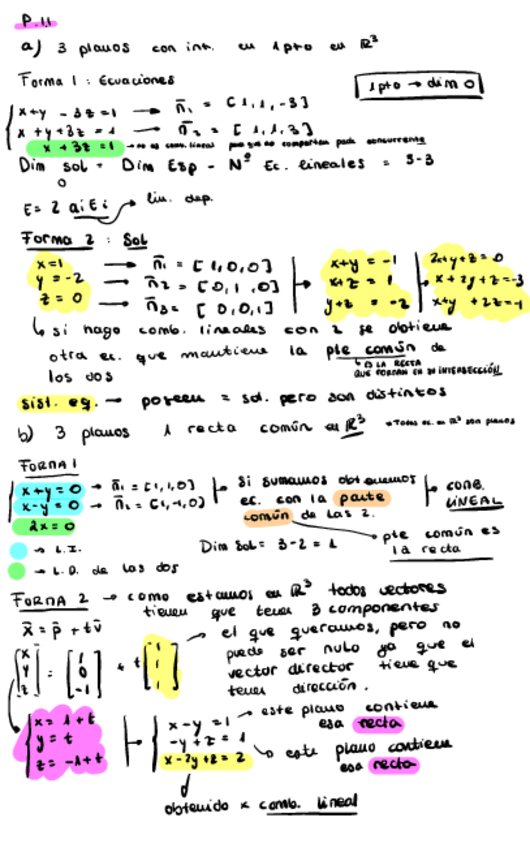 P.11
a) 3 planos con int. en 1pto en R³
Forma 1 : Ecuaciones
1pto → dim 0
x+y -3z=1 → n̄₁ = [1,1,-3]
x+y+3z = 1 → n̄₂ = [1,1,3]
x+3z=1 → no es comb. lineal
Dim sol = Dim Esp - Nº Ec. lineales = 3-3
0
E= Σ aiEi → lin. dep.
Forma 2 : Sol
x=1 → n̄₁ = [1,0,0]
y=-2 → n̄₂ = [0,1,0]
z=0 → n̄₃= [0,0,1]
x+y = -1
x+z = 1
y+z = -2
2x+y+z=0
x+2y+z=-3
x+y+2z=-1
↳ si hago comb. lineales con 2 se obtiene
otra ec. que mantiene la pte común de
los dos
↳ ES LA RECTA
QUE FORMAN EN SU INTERSECCIÓN
sist. eq. → poseen = sol. pero son distintos
b) 3 planos 1 recta común en R³ *Todas ec. en R³ son planos
FORMA 1
x+y=0 → n̄₁ = [1,1,0]
x-y=0 → n̄₂ = [1,-1,0]
2x=0
si sumamos obtenemos
ec. con la parte
común de las 2.
COMB.
LINEAL
Dim Sol= 3-2 = 1
pte común es
la recta
→ L.I.
→ L.D. de las dos
FORMA 2 → como estamos en R³ todos vectores
tienen que tener 3 componentes
x̄ = p̄ + tv̄
[x y z] = [1 0 -1] + t[1 1 1]
→ el que queramos, pero no
puede ser nulo ya que el
vector director tiene que
tener dirección.
x= 1+t
y= t
z= -1+t
x-y=1 → este plano contiene
esa recta
-y+z=1 → este plano contiene
esa recta
x-2y+z=2
obtenido x comb. lineal